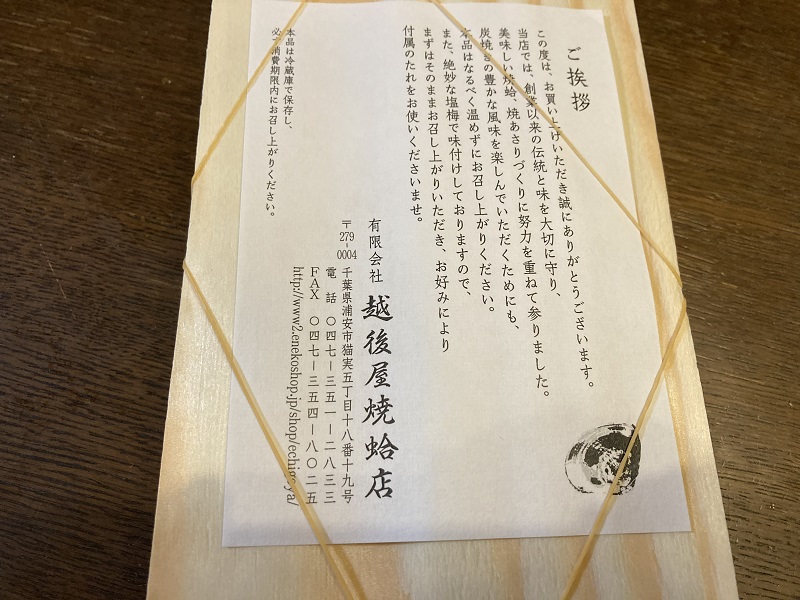 ご挨拶
この度は、お買い上げいただき誠にありがとうございます。
当店では、創業以来の伝統と味を大切に守り、
美味しい焼蛤、焼あさりづくりに努力を重ねて参りました。
炭焼きの豊かな風味を楽しんでいただくためにも、
本品はなるべく温めずにお召し上がりください。
また、絶妙な塩梅で味付けしておりますので、
まずはそのままお召し上がりいただき、お好みにより
付属のたれをお使いくださいませ。
有限会社 越後屋焼蛤店
〒279-0004 千葉県浦安市猫実五丁目十八番十九号
電話 〇四七ー三五一ー二八三三
FAX 〇四七ー三五四ー八〇二五
http://www2.enekoshop.jp/shop/echigoya/
本品は冷蔵庫で保存し、
必ず消費期限内にお召し上がりください。